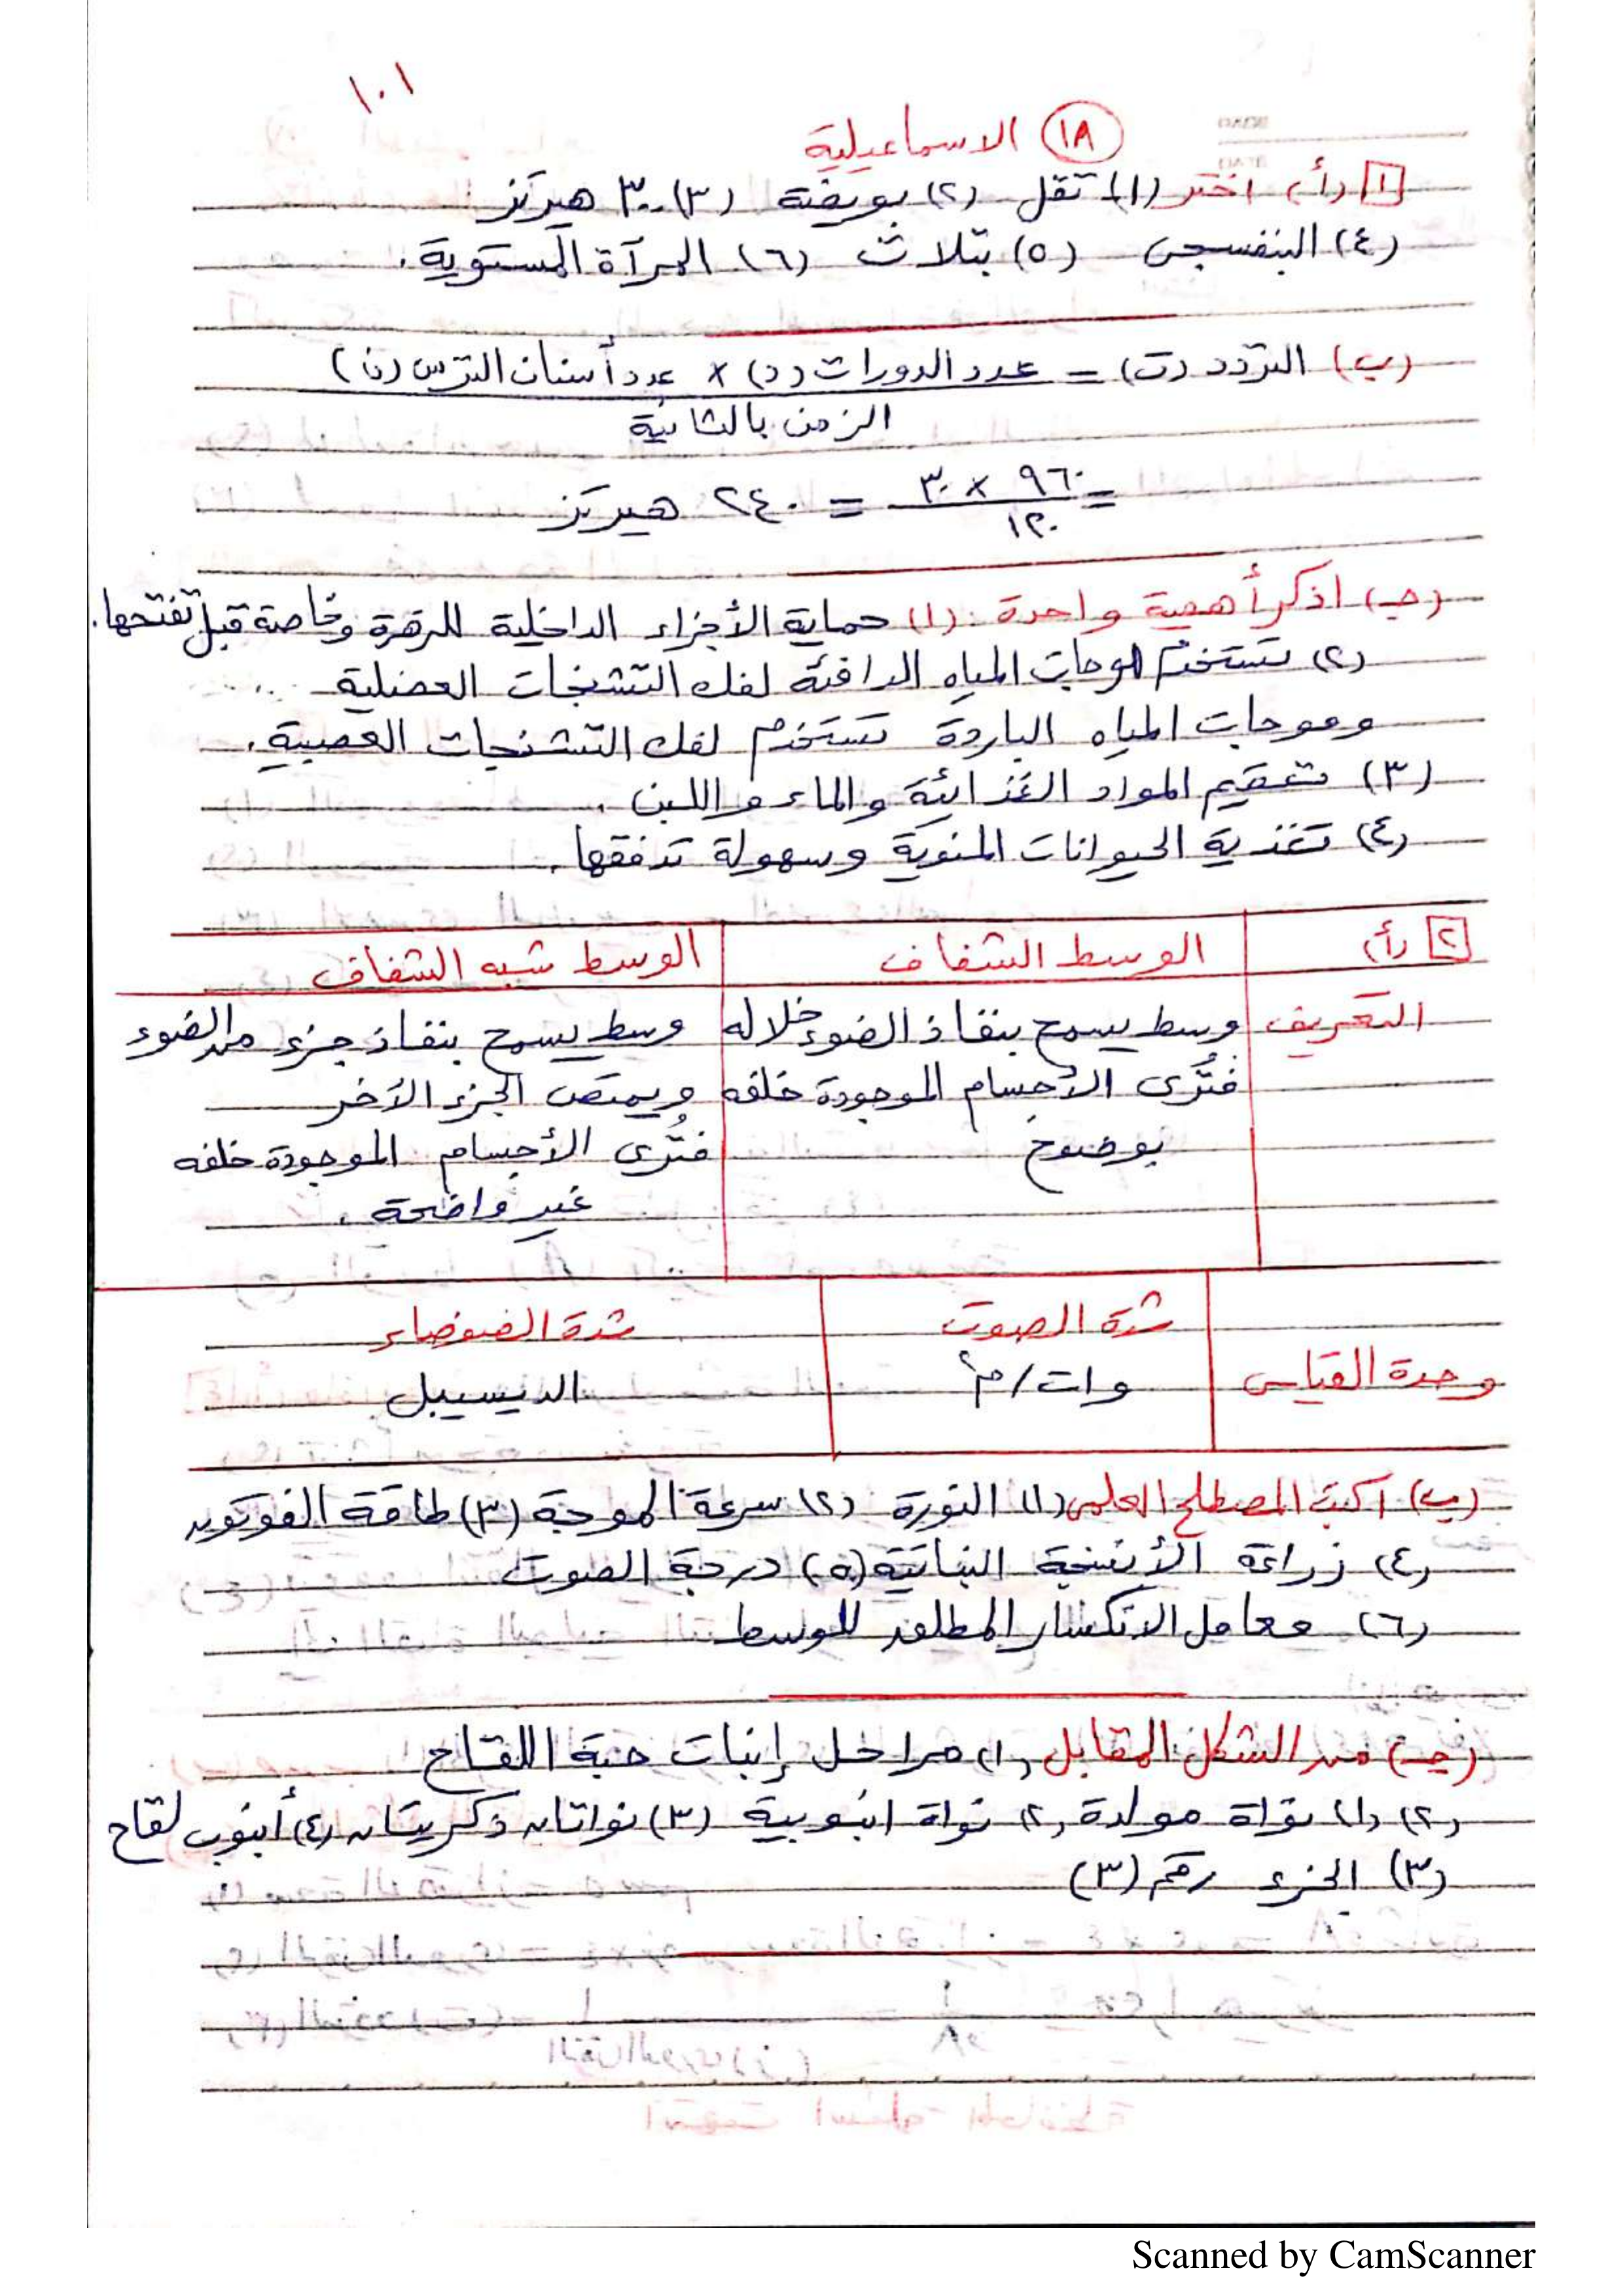 ١٠١
١٨ الاسماعيلية
١ (أ) اختر (١) تقل (٢) بويضة (٣) ٣٠٠ هيرتز
(٤) البنفسجى (٥) بتلات (٦) المرآة المستوية.
(ب) التردد (ت) = عدد الدورات (د) × عدد أسنان الترس (ن)
الزمن بالثانية
= ٩٦٠ × ٣٠ = ٢٤٠ هيرتز
١٢٠
(جـ) اذكر أهمية واحدة: (١) حماية الأجزاء الداخلية للزهرة وخاصة قبل تفتحها.
(٢) تستخدم موجات المياه الدافئة لفك التشنجات العضلية
وموجات المياه الباردة تستخدم لفك التشنجات العصبية.
(٣) تعقيم المواد الغذائية والماء واللبن.
(٤) تغذية الحيوانات المنوية وسهولة تدفقها.
٢ (أ) الوسط الشفاف الوسط شبه الشفاف
التعريف وسط يسمح بنفاذ الضوء خلاله وسط يسمح بنفاذ جزء من الضوء
فتُرى الأجسام الموجودة خلفه ويمتص الجزء الآخر
بوضوح فتُرى الأجسام الموجودة خلفه
غير واضحة.
شدة الصوت شدة الضوضاء
وحدة القياس وات/م٢ الديسيبل
(ب) اكتب المصطلح العلمى (١) النورة (٢) سرعة الموجة (٣) طاقة الفوتون
(٤) زراعة الأنسجة النباتية (٥) درجة الصوت
(٦) معامل الانكسار المطلق للوسط
(جـ) من الشكل المقابل (١) مراحل إنبات حبة اللقاح
(٢) (١) نواة مولدة (٢) نواة انبوبية (٣) نواتان ذكريتان (٤) أنبوب لقاح
(٣) الجزء رقم (٣)
Scanned by CamScanner